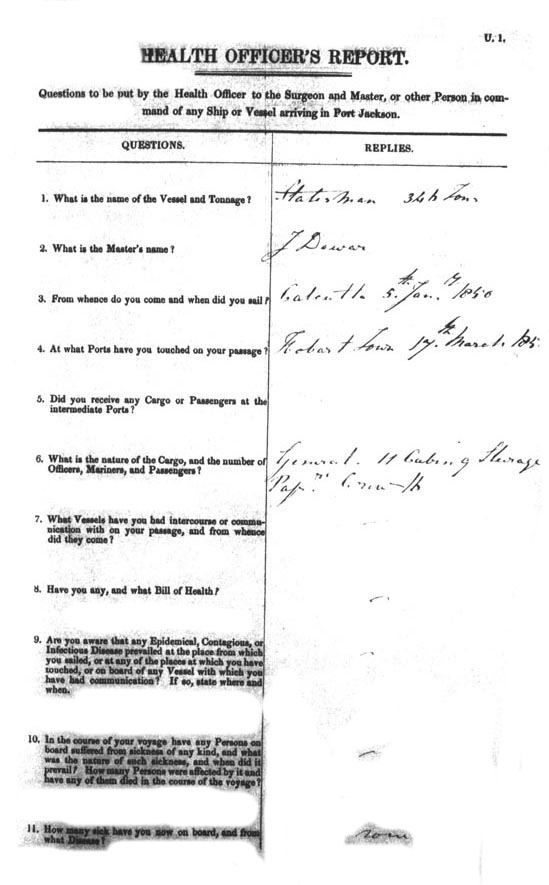 U. 1.
HEALTH OFFICER'S REPORT.
Questions to be put by the Health Officer to the Surgeon and Master, or other Person in com-
mand of any Ship or Vessel arriving in Port Jackson.
QUESTIONS. REPLIES.
1. What is the name of the Vessel and Tonnage? Statesman 346 Tons
2. What is the Master's name? J Dewar
3. From whence do you come and when did you sail? Calcutta 5th Jany 1850
4. At what Ports have you touched on your passage? Hobart Town 17th March 185
5. Did you receive any Cargo or Passengers at the
intermediate Ports?
6. What is the nature of the Cargo, and the number of General. 11 Cabin 9 Steerage
Officers, Mariners, and Passengers? Crew
7. What Vessels have you had intercourse or commu-
nication with on your passage, and from whence
did they come?
8. Have you any, and what Bill of Health?
9. Are you aware that any Epidemical, Contagious, or
Infectious Disease prevailed at the place from which
you sailed, or at any of the places at which you have
touched, or on board of any Vessel with which you
have had communication? If so, state where and
when.
10. In the course of your voyage have any Persons on
board suffered from sickness of any kind, and what
was the nature of such sickness, and when did it
prevail? How many Persons were affected by it and
have any of them died in the course of the voyage?
11. How many sick have you now on board, and from
what Disease?